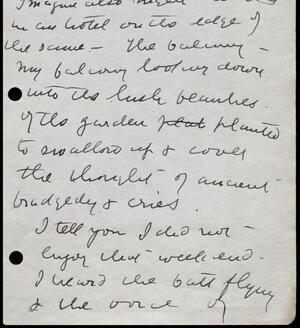 Imagine also
in an hotel on the edge of
the same – The balcony –
my balcony looking down
into the lush beauties
of the garden planted
to swallow up & cover
the thought of ancient
tradgedy & cries.
I tell you I did not
enjoy that week-end.
I heard the bats flying
& the voice of